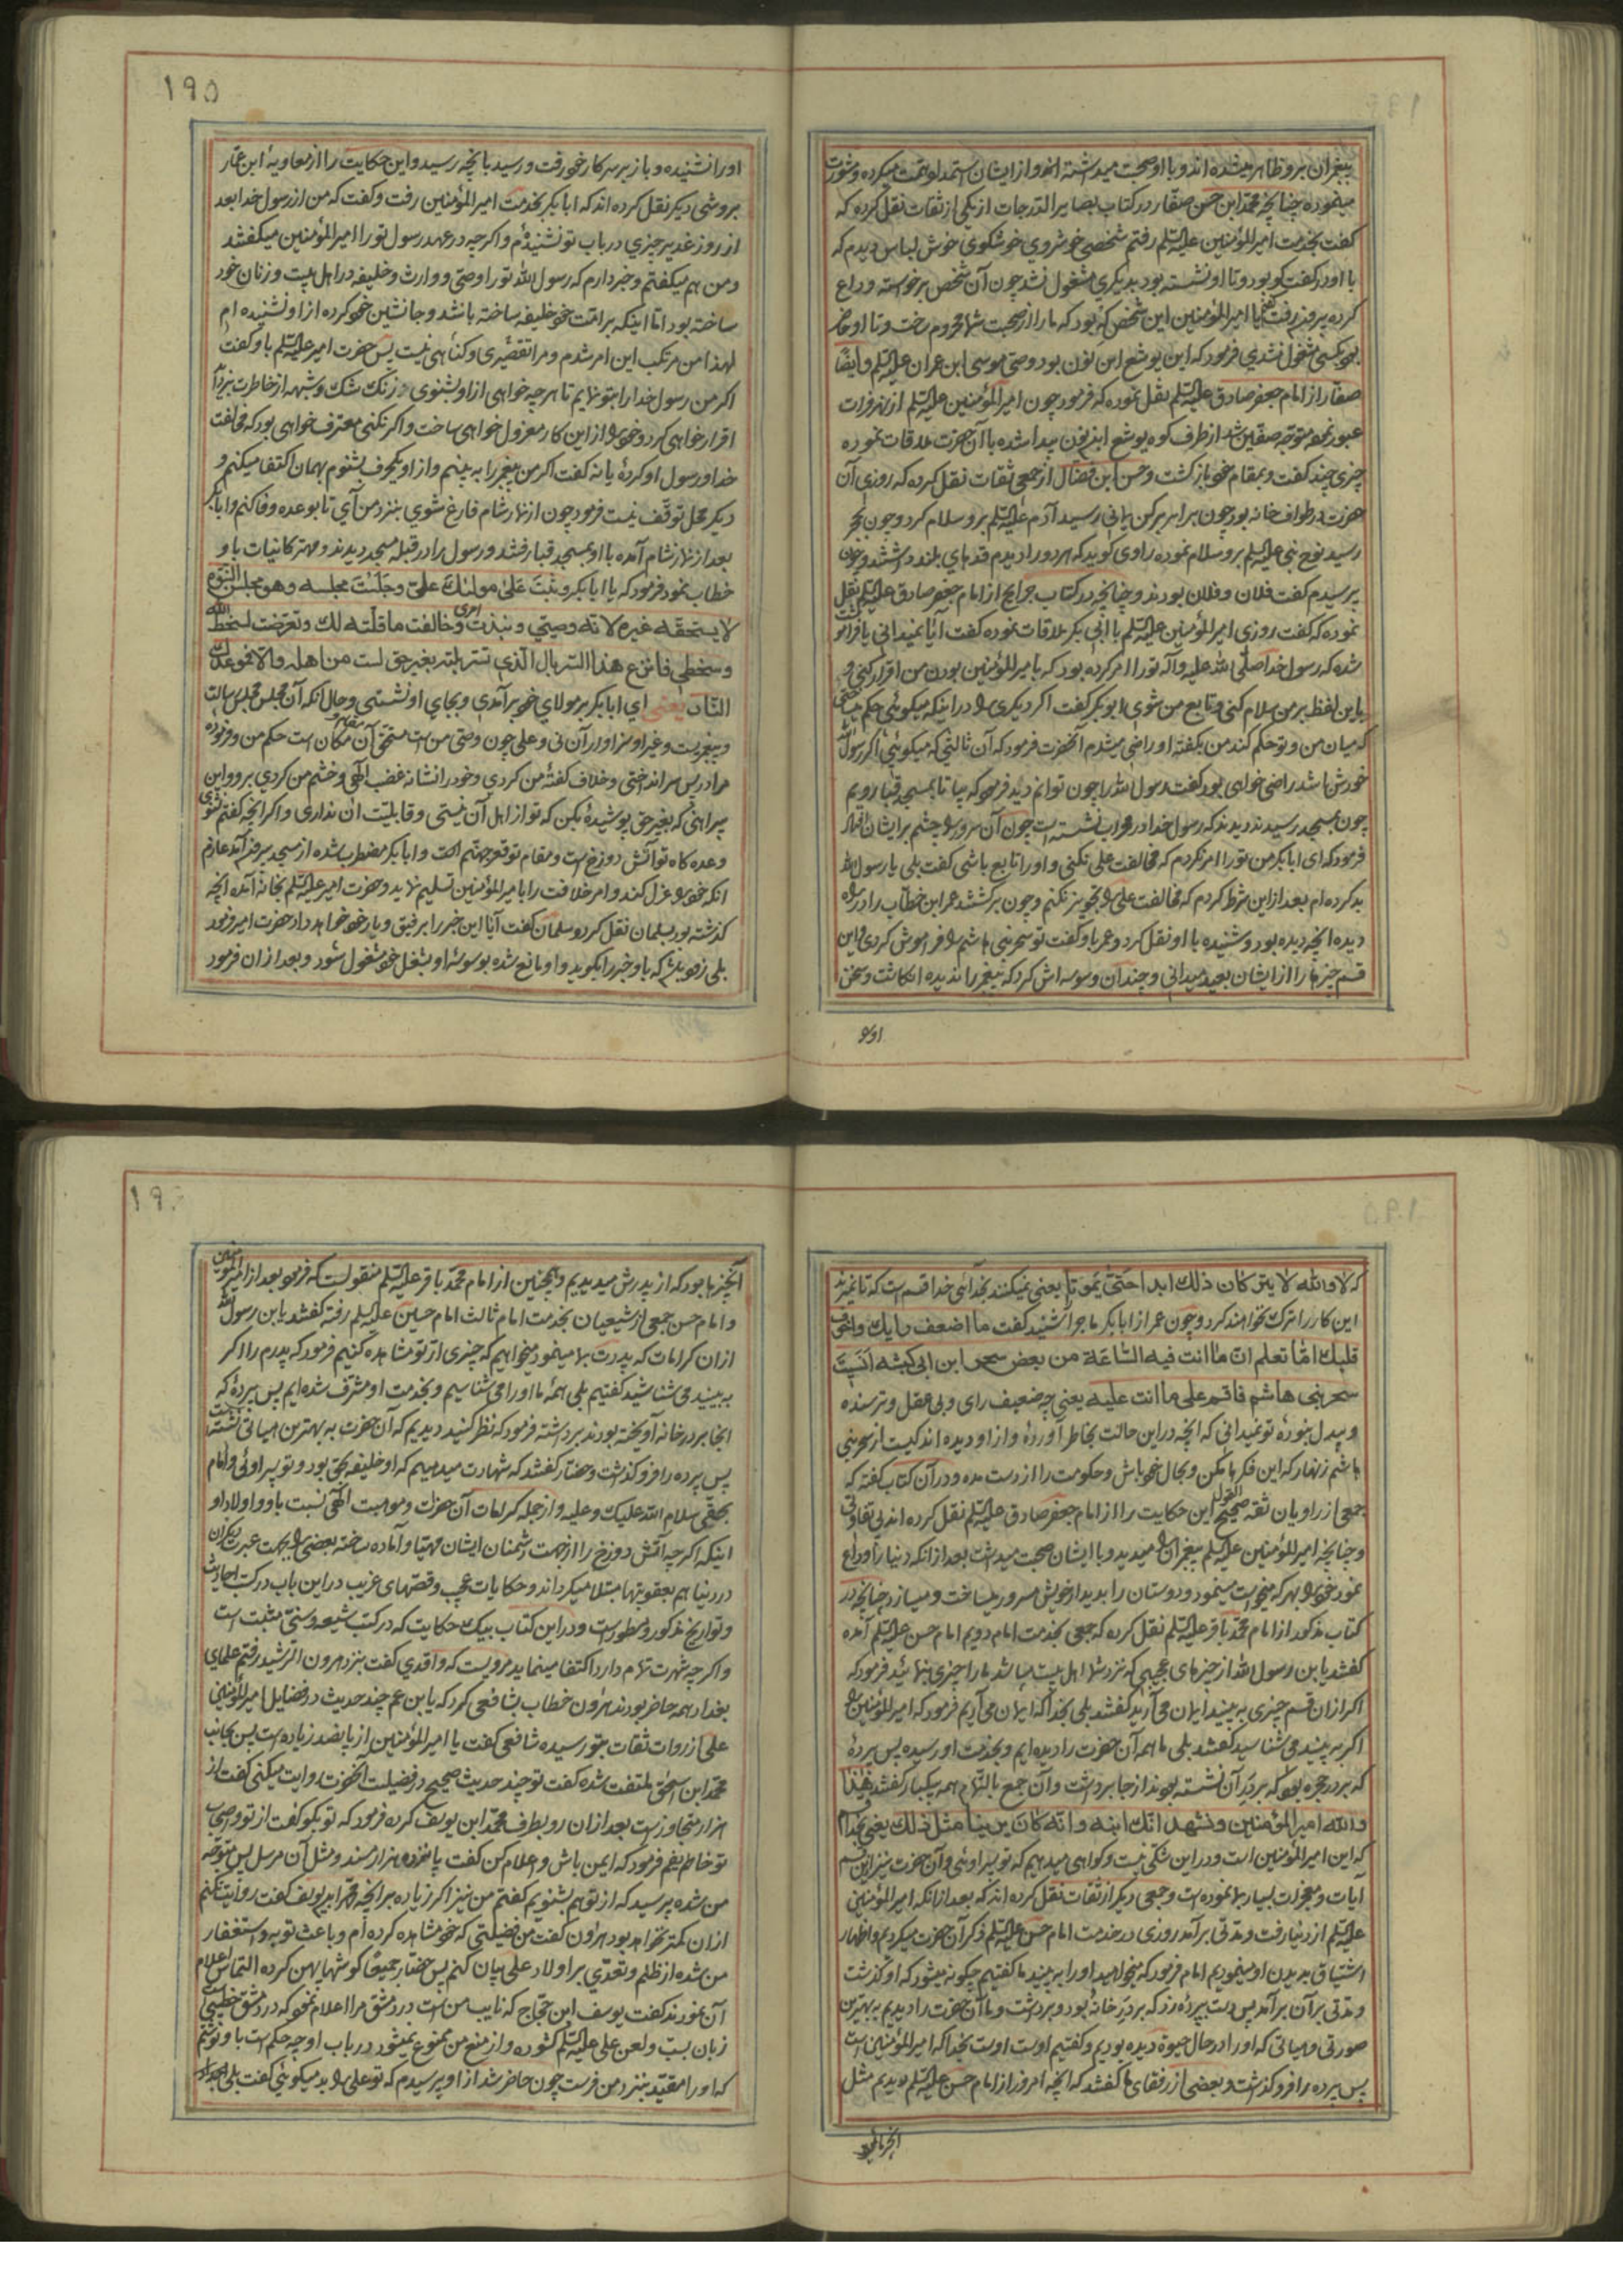 پیغمبران برو ظاهر میشده اند و با او صحبت میداشته اند و از ایشان استمداد و همت میکرده و مشورت
مینموده چنانچه محمد ابن حسن صفار در کتاب بصایر الدرجات از یکی از ثقات نقل کرده که
کفت بخدمت امیر المؤمنین علیه السلم رفتم شخصی خوشروی خوشکوی خوش لباس دیدم که
با او در کفت کو بود و تا او نشسته بود بدیکری مشغول نشد چون آن شخص برخواسته وداع
کرده بیرون رفت کفتم یا امیر المؤمنین این شخص که بود که ما را از صحبت شما محروم ساخت و تا او حاضر
بود بکسی مشغول نشدی فرمود که این یوشع ابن نون بود وصی موسی ابن عمران علیه السلم و ایضا
صفار از امام جعفر صادق علیه السلم نقل نموده که فرمود چون امیر المؤمنین علیه السلم از نهر فرات
عبور نموده متوجه صفین شد از طرف کوه یوشع ابن نون پیدا شده با آن حضرت ملاقات نموده
چیزی چند کفت و بمقام خود باز کشت و حسن ابن فضال از جمعی ثقات نقل کرده که روزی آن
حضرت در طواف خانه بود چون برابر رکن یمانی رسید آدم علیه السلم برو سلام کرد و چون بحجر
رسید نوح نبی علیه السلم برو سلام نموده راوی کوید که هر دو را دیدم قدهای بلند داشتند و چون
پرسیدم کفت فلان و فلان بودند و چنانچه در کتاب جرایح از امام جعفر صادق علیه السلم نقل
نموده که کفت روزی امیر المؤمنین علیه السلم با ابی بکر ملاقات نموده کفت آیا نمیدانی یا فراموشت
شده که رسول خدا صلی الله علیه و آله تو را امر کرده بود که بامیر المؤمنین بودن من اقرار کنی و
باین لفظ بر من سلام کنی و تابع من شوی ابو بکر کفت اکر دیکری را در اینکه میکوئی حکم میساختی
که میان من و تو حکم کند من بکفته او راضی میشدم آنحضرت فرمود که آن ثالثی که میکوئی اکر رسول الله
خودش باشد راضی خواهی بود کفت رسول الله را چون توانم دید فرمود که بیا تا بمسجد قبا رویم
چون بمسجد رسیدند دیدند که رسول خدا در محراب نشسته است چون آن سرور را چشم بر ایشان افتاد
فرمود که ای ابا بکر من تو را امر نکردم که مخالفت علی نکنی و او را تابع باشی کفت بلی یا رسول الله
بد کرده ام بعد از این شرط کردم که مخالفت علی را تجویز نکنم و چون برکشتند عمر ابن خطاب را در راه
دیده آنچه دیده بود و شنیده با او نقل کرد و عمر باو کفت تو سحر بنی هاشم را فراموش کردی و این
قسم چیزها را از ایشان بعید میدانی و چندان وسوسه اش کرد که پیغمبر را ندیده انکاشت و سخن
او را
۱۹۵
او را نشنیده و باز بر سر کار خود رفت و رسید بآنچه رسید و این حکایت را از معاویة ابن عمار
بروشی دیکر نقل کرده اند که ابا بکر بخدمت امیر المؤمنین رفت و کفت که من از رسول خدا بعد
از روز غدیر چیزی در باب تو نشنیدم و اکر چه در عهد رسول تو را امیر المؤمنین میکفتند
و من هم میکفتم و خبر دارم که رسول الله تو را وصی و وارث و خلیفه در اهل بیت و زنان خود
ساخته بود اما اینکه بر امت خود خلیفه ساخته باشد و جانشین خود کرده از او نشنیده ام
لهذا من مرتکب این امر شدم و مرا تقصیری و کناهی نیست پس حضرت امیر علیه السلم باو کفت
اکر من رسول خدا را بتو نمایم تا هر چه خواهی از او بشنوی و زنک شک و شبهه از خاطرت بزداید
اقرار خواهی کرد و خود را از این کار معزول خواهی ساخت و اکر نکنی معترف خواهی بود که مخالفت
خدا و رسول او کردهٔ یا نه کفت اکر من پیغمبر را به بینم و از او یکحرف بشنوم بهمان اکتفا میکنم و
دیکر محل توقف نیست فرمود چون از نماز شام فارغ شوی بنزد من آی تا بوعده وفا کنم و ابا بکر
بعد از نماز شام آمده با او بمسجد قبا رفتند و رسول را در قبله مسجد دیدند و مهتر کاینات باو
خطاب نموده فرمود که یا ابا بکر وثبت علی مولیک علی وجلست مجلسه وهو مجلس النبوة
لا یستحقه غیره لانه وصیی ونبذت امری وخالفت ما قلته لک وتعرضت لسخط الله
وسخطی فانزع هذا السربال الذی تسربلته بغیر حق لست من اهله والا فموعدک
النار یعنی ای ابا بکر بر مولای خود برآمدی و بجای او نشستی و حال آنکه آن مجلس مجلس رسالت
و پیغمبریست و غیر او سزاوار آن نی و علی چون وصی من است مستحق آن مقام و مکان است حکم من و فرموده
مرا در پس سر انداختی و خلاف کفتهٔ من کردی و خود را نشانه غضب الهی و خشم من کردی برو و این
پیراهنی که بغیر حق پوشیدهٔ بکن که تو از اهل آن نیستی و قابلیت آن نداری و اکر آنچه کفتم نشنوی
وعده کاه تو آتش دوزخ است و مقام تو قعر جهنم است و ابا بکر مضطرب شده از مسجد بیرون آمد عازم
آنکه خود را عزل کند و امر خلافت را بامیر المؤمنین تسلیم نماید و حضرت امیر علیه السلم بخانه آمده آنچه
کذشته بود بسلمان نقل کرد و سلمان کفت آیا این خبر را برفیق و یار خود خواهد داد حضرت امیر فرمود
بلی زود باشد که باو خبر را بکوید و او مانع شده بوسوسهٔ او بشغل خود مشغول شود و بعد از آن فرمود
که لا والله لا یترکان ذلک ابدا حتی یموتا یعنی نمیکنند بخدائی خدا قسم است که تا نمیرند
این کار را ترک نخواهند کرد و چون عمر از ابا بکر ماجرا شنید کفت ما اضعف رایک واخوف
قلبک اما تعلم ان ما انت فیه الساعة من بعض سحر ابن ابی کبشه انسیت
سحر بنی هاشم فاقم علی ما انت علیه یعنی چه ضعیف رای و بی عقل و ترسنده
و بیدل بودهٔ تو نمیدانی که آنچه در این حالت بخاطر آورده و از او دیده اندکیست از سحر بنی
هاشم زنهار که این فکرها مکن و بحال خود باش و حکومت را از دست مده و در آن کتاب کفته که
جمعی از راویان ثقه صحیح القول این حکایت را از امام جعفر صادق علیه السلم نقل کرده اند بی تفاوتی
و چنانچه امیر المؤمنین علیه السلم پیغمبران را میدید و با ایشان صحبت میداشت بعد از آنکه دنیا را وداع
نمود خود را بهر که میخواست مینمود و دوستان را بدیدار خویش مسرور میساخت و میسازد چنانچه در
کتاب مذکور از امام محمد باقر علیه السلم نقل کرده که جمعی بخدمت امام دویم امام حسن علیه السلم آمده
کفتند یا بن رسول الله از چیزهای عجیبی که نزد شما اهل بیت میباشد ما را چیزی بنمائید فرمود که
اکر از آن قسم چیزی به بینید ایمان می آرید کفتند بلی بخدا که ایمان می آریم فرمود که امیر المؤمنین را
اکر به بینید می شناسید کفتند بلی ما همه آن حضرت را دیده ایم و بخدمت او رسیده پس پردهٔ
که بر در حجره بود که بر در آن نشسته بودند از جا برداشت و آن جمع بالتمام همه بیکبار کفتند هذا
والله امیر المؤمنین ونشهد انک ابنه وانه کان یرینا مثل ذلک یعنی بخدا
که این امیر المؤمنین است و در این شکی نیست و کواهی میدهیم که تو پسر اوئی و آن حضرت نیز از این قسم
آیات و معجزات بسیار بما نموده است و جمعی دیکر از ثقات نقل کرده اند که بعد از آنکه امیر المؤمنین
علیه السلم از دنیا رفت و مدتی برآمد روزی در خدمت امام حسن علیه السلم ذکر آن حضرت میکردیم و اظهار
اشتیاق بدیدن او مینمودیم امام فرمود که میخواهید او را به بینید ما کفتیم چکونه میشود که او کذشت
و مدتی بر آن برآمد پس دست بپرده زد که بر در خانه بود و برداشت و ما آن حضرت را دیدیم به بهترین
صورتی و هیاتی که او را در حال حیوة دیده بودیم و کفتیم اوست اوست بخدا که امیر المؤمنین است
پس پرده را فرو کذاشت و بعضی از رفقای ما کفتند که آنچه امروز از امام حسن علیه السلم دیدیم مثل
آنچیزها بود که از پدرش میدیدیم و همچنین از امام محمد باقر علیه السلم منقولست که فرمود بعد از امیر المؤمنین
و امام حسن جمعی از شیعیان بخدمت امام ثالث امام حسین علیه السلم رفته کفتند یا بن رسول الله
از آن کرامات که پدرت بما مینمود میخواهیم که چیزی از تو مشاهده کنیم فرمود که پدرم را اکر
به بینید می شناسید کفتیم بلی همهٔ ما او را می شناسیم و بخدمت او مشرف شده ایم پس پردهٔ که
آنجا بر در خانه آویخته بودند برداشته فرمود که نظر کنید دیدیم که آن حضرت به بهترین هیاتی نشسته است
پس پرده را فرو کذاشت و حضار کفتند که شهادت میدهیم که او خلیفه بحق بود و تو پسر اوئی و امام
بحقی سلام الله علیک و علیه و از جمله کرامات آن حضرات و موهبت الهی نسبت باو و اولاد او
اینکه اکر چه آتش دوزخ را از جهت دشمنان ایشان مهیا و آماده ساخته بعضی را بجهت عبرت دیکران
در دنیا هم بعقوبتها مبتلا میکرداند و حکایات عجیب و قصهای غریب در این باب در کتب احادیث
و تواریخ مذکور و مسطور است و در این کتاب بیک حکایت که در کتب شیعه و سنی مثبت است
و اکر چه شهرت تمام دارد اکتفا مینماید مرویست که واقدی کفت بنزد هرون الرشید رفتم علمای
بغداد همه حاضر بودند هارون خطاب بشافعی کرد که یا بن عم چند حدیث در فضایل امیر المؤمنین
علی از روات ثقات بتو رسیده شافعی کفت یا امیر المؤمنین از پانصد زیاده است پس بجانب
محمد ابن اسحق ملتفت شده کفت تو چند حدیث صحیح در فضیلت آنحضرت روایت میکنی کفت از
هزار متجاوز است بعد از آن رو بطرف محمد ابن یوسف کرده فرمود که تو بکو کفت از تو و اصحاب
تو خائفم فرمود که ایمن باش و اعلام کن کفت پانزده هزار مسند و مثل آن مرسل پس متوجه
من شده پرسید که از تو هم بشنویم کفتم من نیز اکر زیاده بر آنچه محمد ابن یوسف کفت روایت نکنم
از آن کمتر نخواهد بود هارون کفت من فضیلتی که خود مشاهده کرده ام و باعث توبه و استغفار
من شده از ظلم و تعدی بر اولاد علی بیان کنم پس حضار جمیعا کوشها پهن کرده التماس اعلام
آن نمودند کفت یوسف ابن حجاج که نایب من است در دمشق مرا اعلام نمود که در دمشق خطیبی است
زبان بسب و لعن علی علیه السلم کشوده و از منع من ممنوع نمیشود در باب او چه حکم است باو نوشتم
که او را مقید بنزد من فرست چون حاضر شد از او پرسیدم که تو علی را بد میکوئی کفت بلی